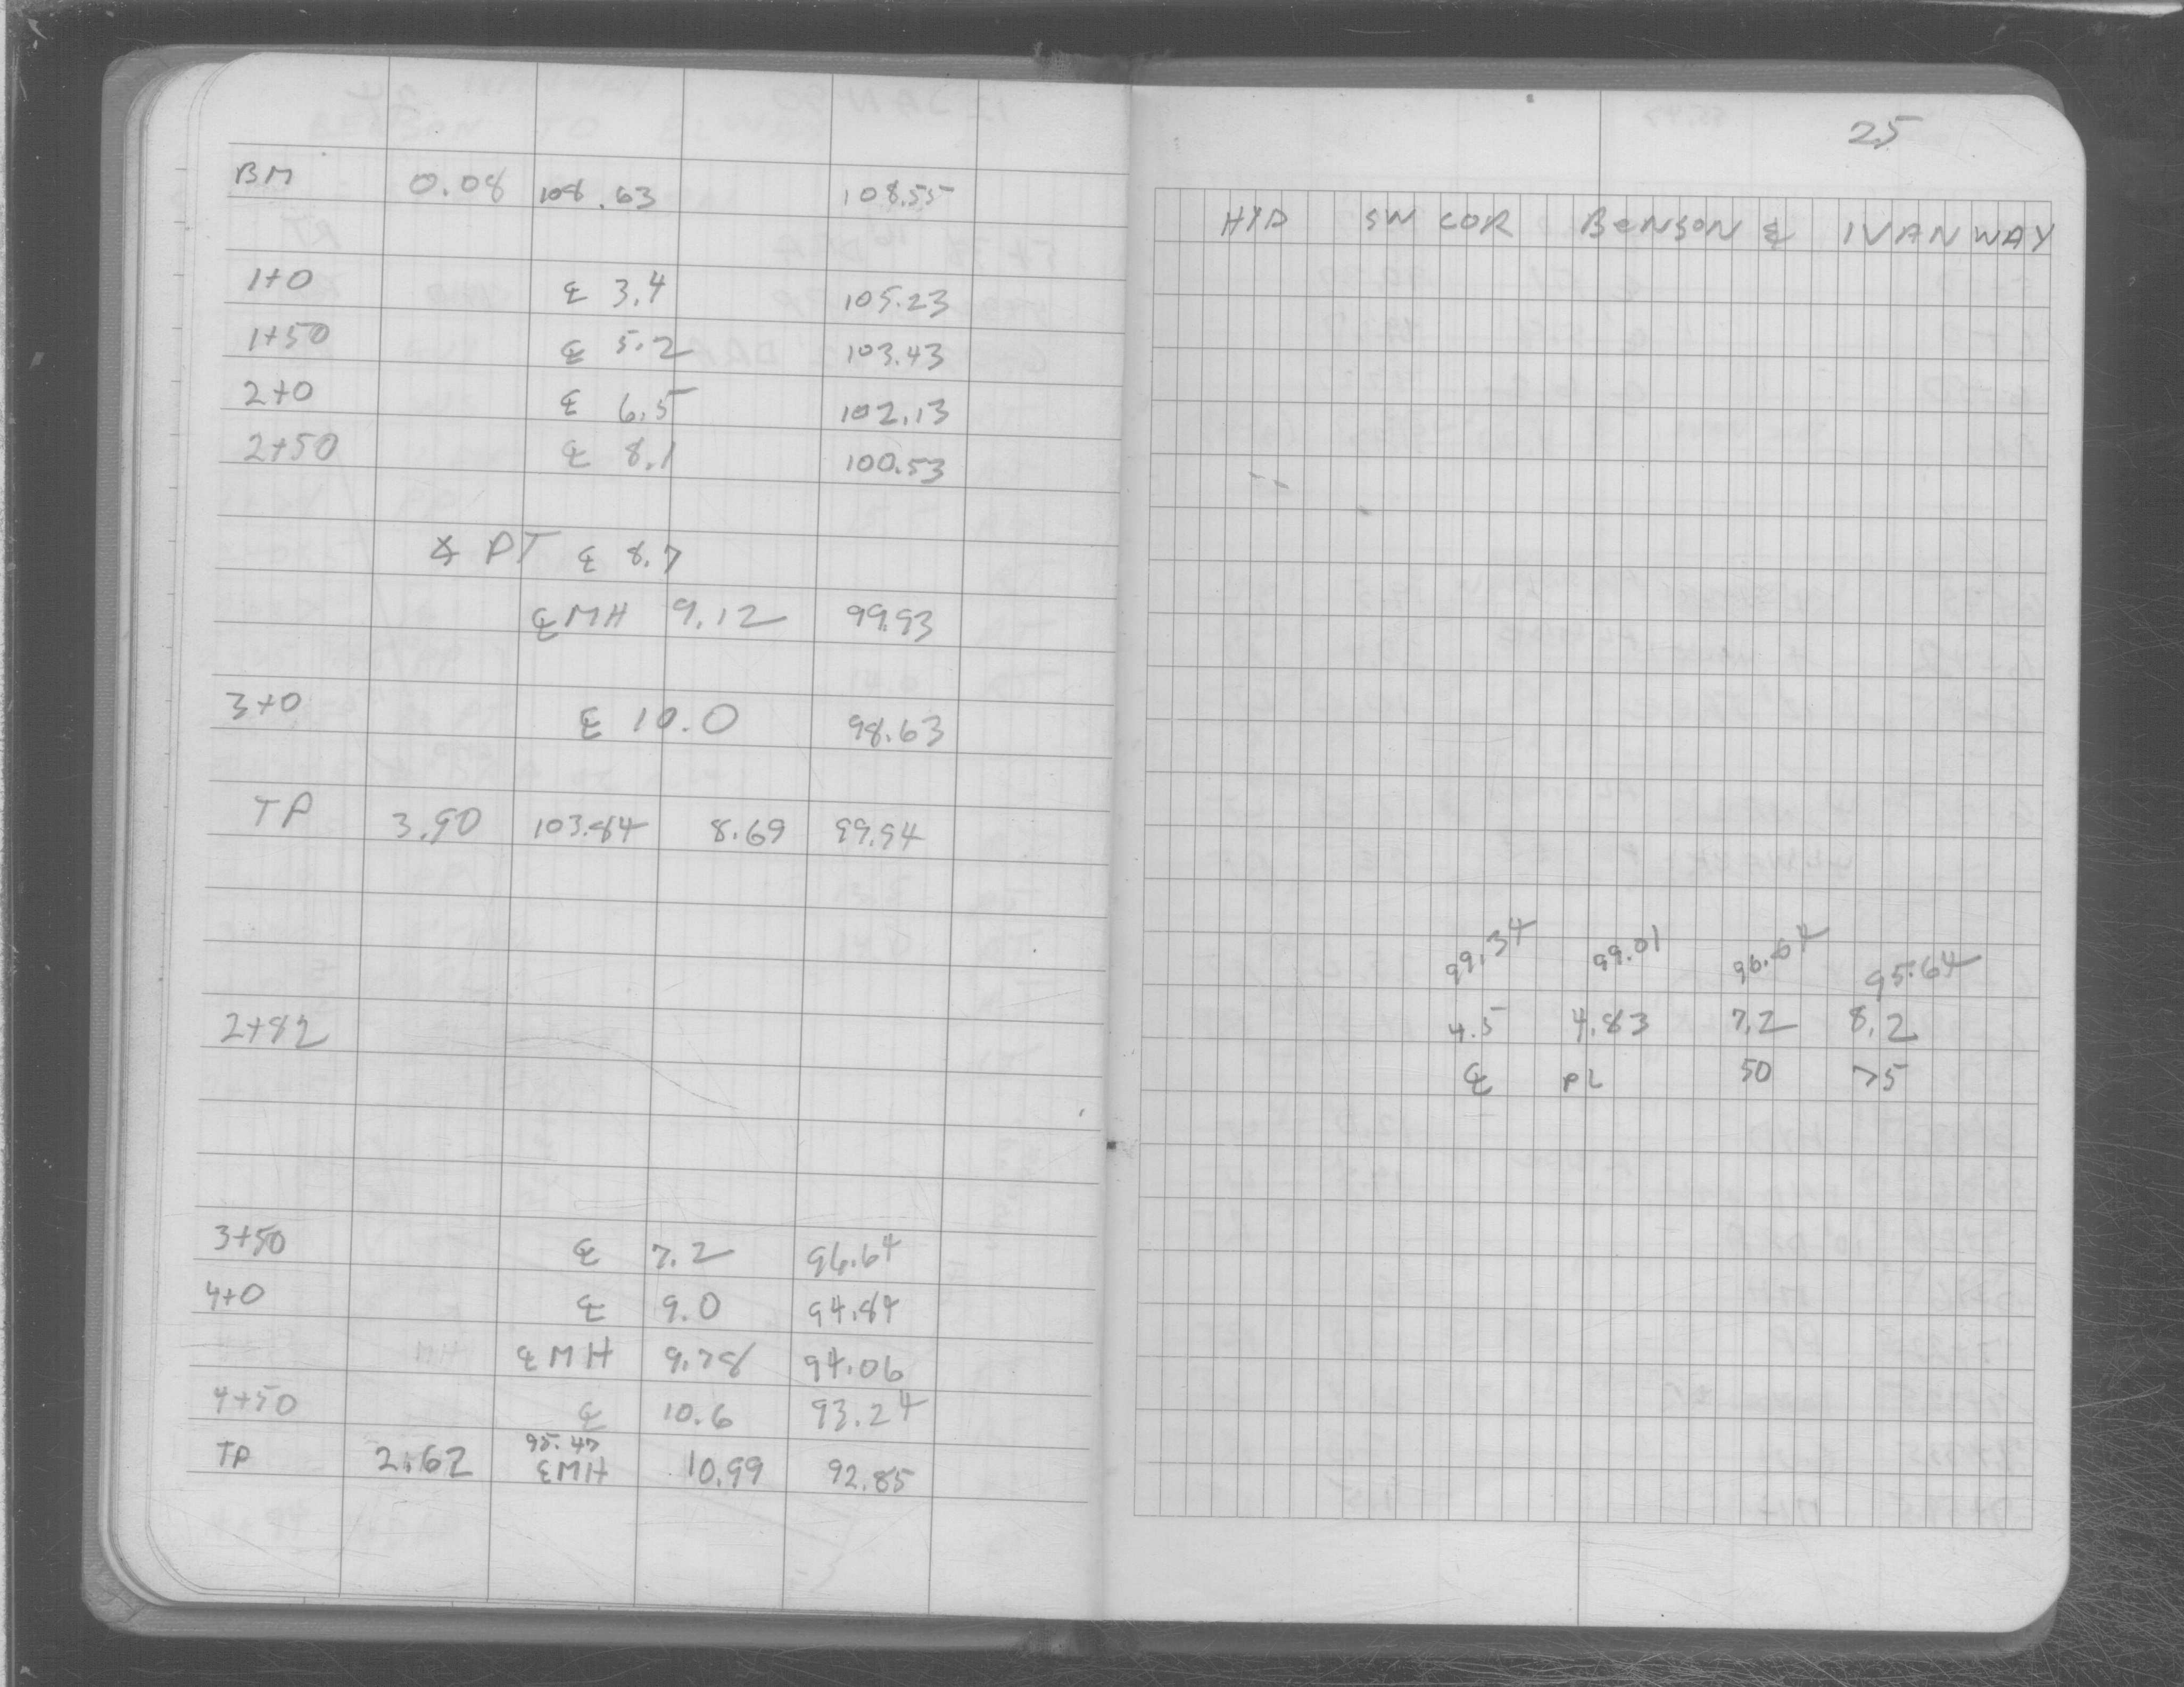 BM 0.08 108.63 108.55
1+0 ℄ 3.4 105.23
1+50 ℄ 5.2 103.43
2+0 ℄ 6.5 102.13
2+50 ℄ 8.1 100.53
∡ PT ℄ 8.7
℄ MH 9.12 99.93
3+0 ℄ 10.0 98.63
TP 3.90 103.84 8.69 99.94
2+82
3+50 ℄ 7.2 96.64
4+0 ℄ 9.0 94.84
℄ MH 9.78 94.06
4+50 ℄ 10.6 93.24
95.47
TP 2.62 ℄ MH 10.99 92.85
25
HYD SW COR BENSON & IVAN WAY
99.34 99.01 96.64 95.64
4.5 4.83 7.2 8.2
℄ PL 50 75